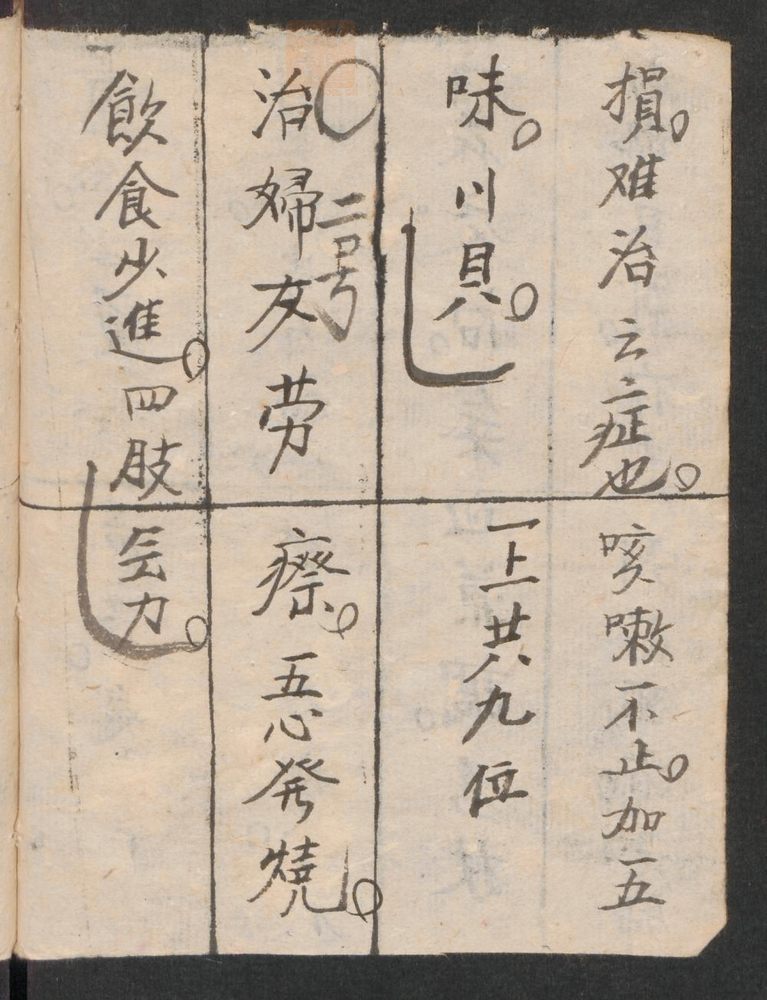 損。难治云症也。咳嗽不止。加五
味。川貝。一上共九位
○二号
治婦女劳瘵。五心發燒。
飲食少進。四肢乏力。